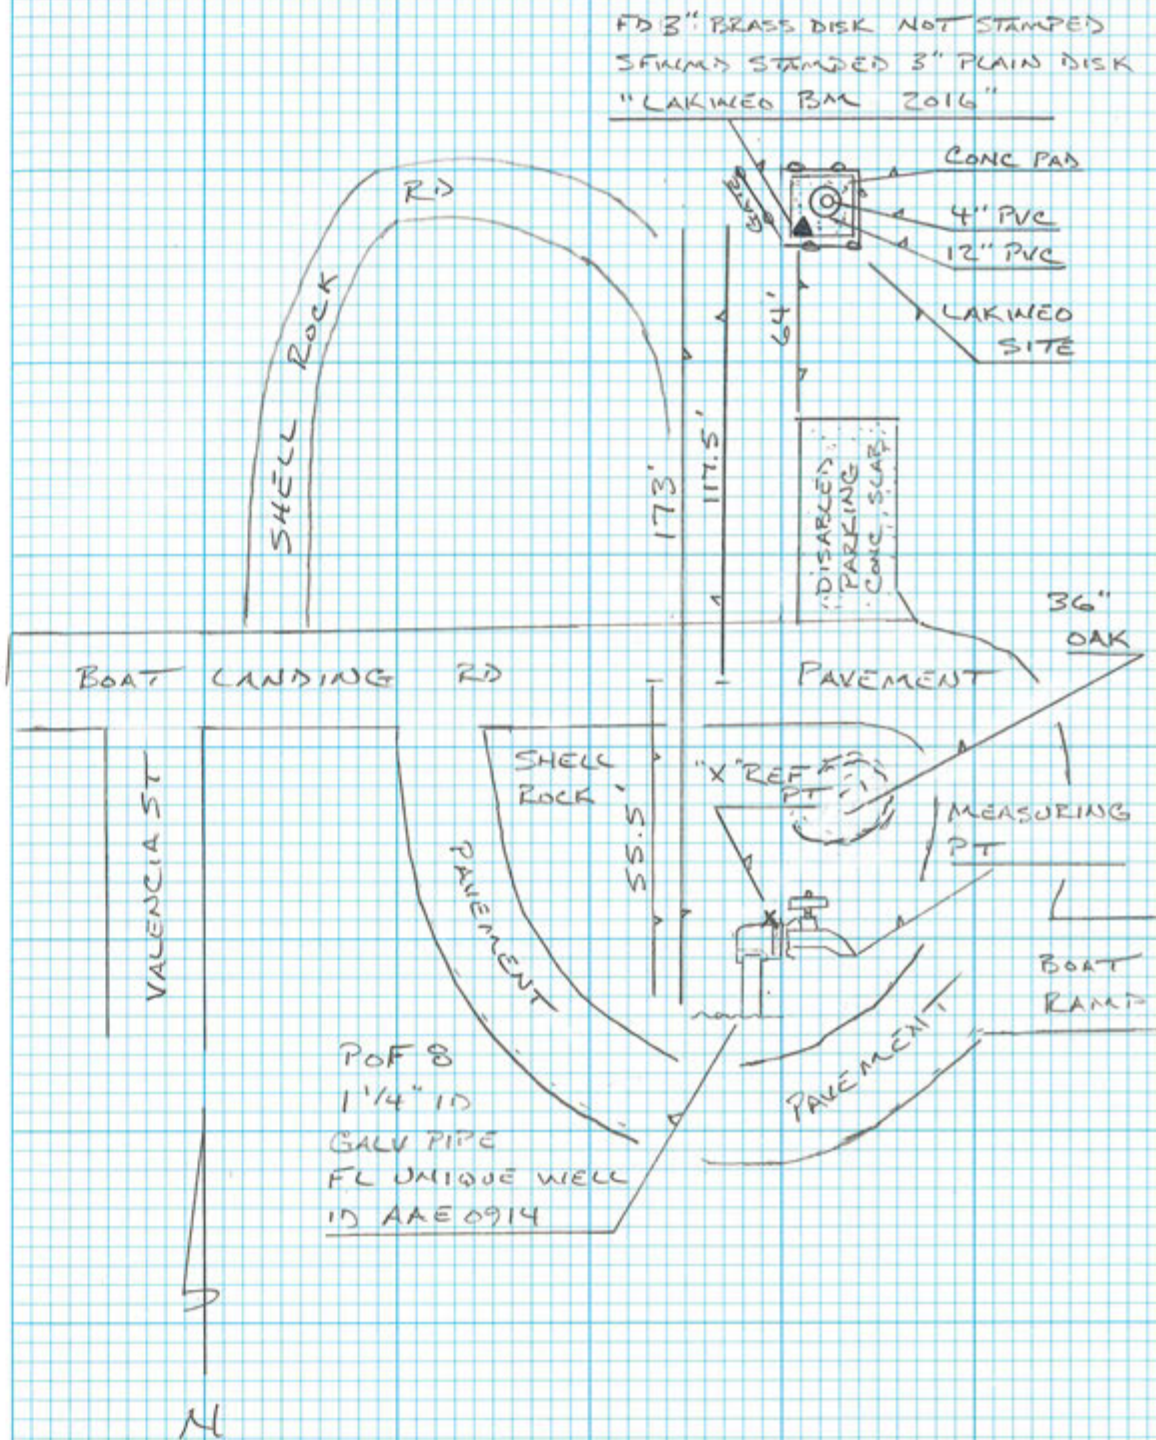 FD 3" BRASS DISK NOT STAMPED
SFWMD STAMPED 3" PLAIN DISK
"LAKINEO BM 2016"
CONC PAD
4" PVC
12" PVC
GATE
LAKINEO
SITE
RD
SHELL ROCK
64'
117.5'
173'
DISABLED
PARKING
CONC. SLAB
36"
OAK
BOAT LANDING RD
PAVEMENT
SHELL
ROCK
"X" REF
PT
MEASURING
PT
VALENCIA ST
PAVEMENT
55.5'
BOAT
RAMP
PAVEMENT
POF 8
1 1/4" ID
GALV PIPE
FL UNIQUE WELL
ID AAE 0914
X
N